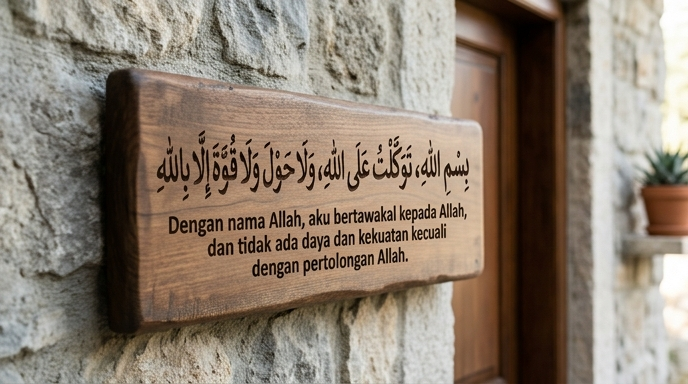 بِسْمِ اللهِ، تَوَكَّلْتُ عَلَى اللهِ، وَلَا حَوْلَ وَلَا قُوَّةَ إِلَّا بِاللهِ
Dengan nama Allah, aku bertawakal kepada Allah,
dan tidak ada daya dan kekuatan kecuali
dengan pertolongan Allah.